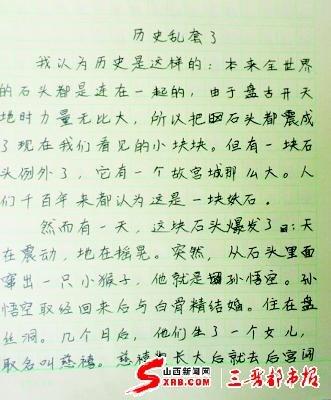 历史乱套了
我认为历史是这样的：本来全世界
的石头都是连在一起的，由于盘古开天
地时力量无比大，所以把石头都震成
了现在我们看见的小块块。但有一块石
头例外了，它有一个故宫城那么大。人
们千百年来都认为这是一块妖石。
然而有一天，这块石头爆发了：天
在震动，地在摇晃。突然，从石头里面
窜出一只小猴子，他就是孙悟空。孙
悟空取经回来后与白骨精结婚。住在盘
丝洞。几个月后，他们生了一个女儿，
取名叫慈禧。慈禧长大后就去后宫闯
山西新闻网
SXRB.COM
三晋都市报